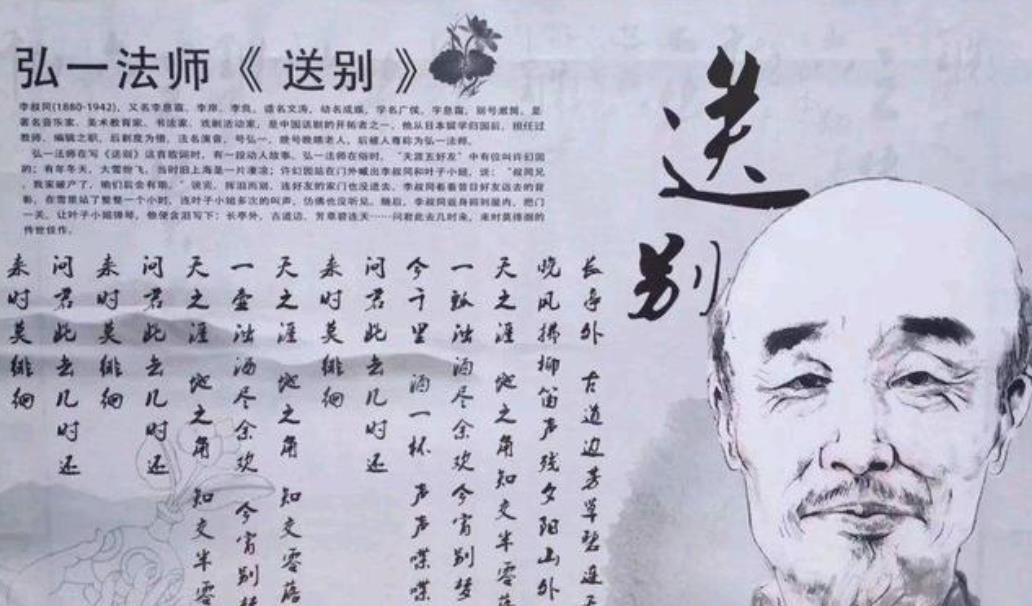 弘一法师《送别》
李叔同(1880-1942)，又名李息霜、李岸、李良，谱名文涛，幼名成蹊，学名广侯，字息霜，别号漱筒，是
著名音乐家、美术教育家、书法家、戏剧活动家，是中国话剧的开拓者之一。他从日本留学归国后，担任过
教师、编辑之职，后剃度为僧，法名演音，号弘一，晚号晚晴老人，后被人尊称为弘一法师。
弘一法师在写《送别》这首歌词时，有一段动人故事。弘一法师在俗时，“天涯五好友”中有位叫许幻园
的；有年冬天，大雪纷飞，当时旧上海是一片凄凉；许幻园站在门外喊出李叔同和叶子小姐，说：“叔同兄
，我家破产了，咱们后会有期。”说完，挥泪而别，连好友的家门也没进去。李叔同看着昔日好友远去的背
影，在雪里站了整整一个小时，连叶子小姐多次的叫声，仿佛也没听见。随后，李叔同返身回到屋内，把门
一关，让叶子小姐弹琴，他便含泪写下：长亭外，古道边，芳草碧连天……问君此去几时来，来时莫徘徊的
传世佳作。
送别
长亭外 古道边芳草碧连天
晚风拂柳笛声残夕阳山外
天之涯 地之角知交半零落
一瓢浊酒尽余欢今宵别梦
今千里 酒一杯 声声喋喋
问君此去几时还
来时莫徘徊
天之涯 地之角 知交零落
一壶浊酒尽余欢 今宵别梦
天之涯 地之角 知交半零
问君此去几时还
来时莫徘徊
问君此去几时还
来时莫徘徊